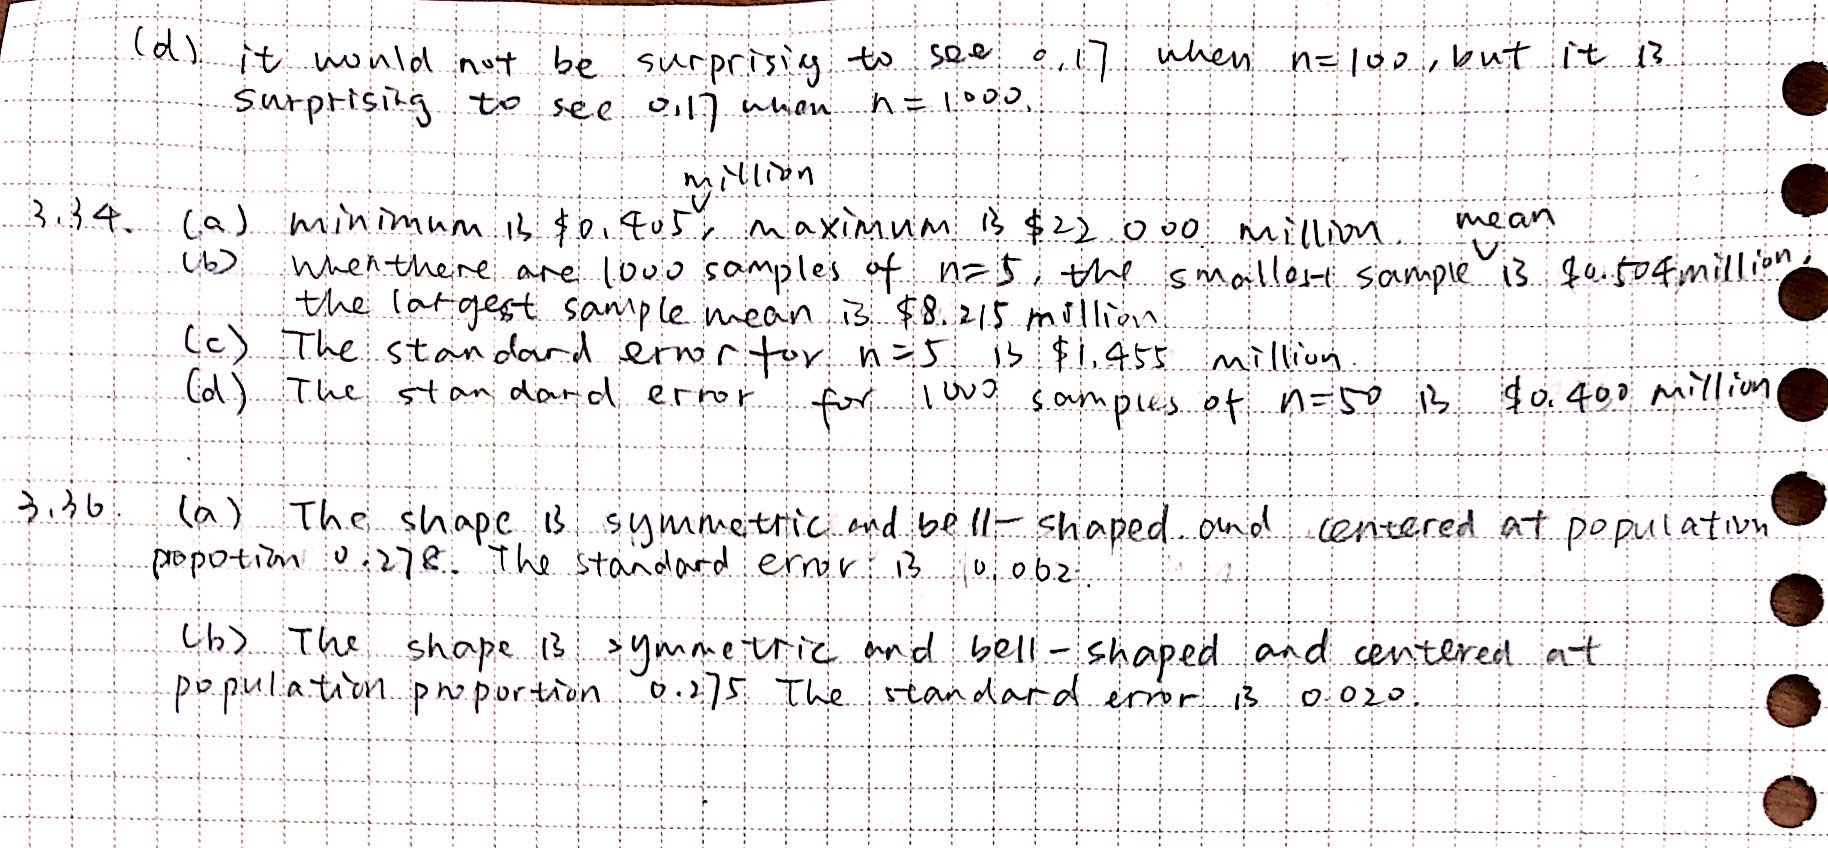 (d) it would not be surprisig to see 0.17 when n=100, but it is
surprising to see 0.17 when n=1000.
million
3.34. (a) minimum is $0.405, maximum is $22.000 million.
mean
(b) when there are 1000 samples of n=5, the smallest sample is $0.504 million,
the largest sample mean is $8.215 million
(c) The standard error for n=5 is $1.455 million.
(d) The standard error for 1000 samples of n=50 is $0.400 million
3.36. (a) The shape is symmetric and bell-shaped and centered at population
propotion 0.278. The standard error is 0.062.
(b) The shape is symmetric and bell-shaped and centered at
population proportion 0.275 The standard error is 0.020.